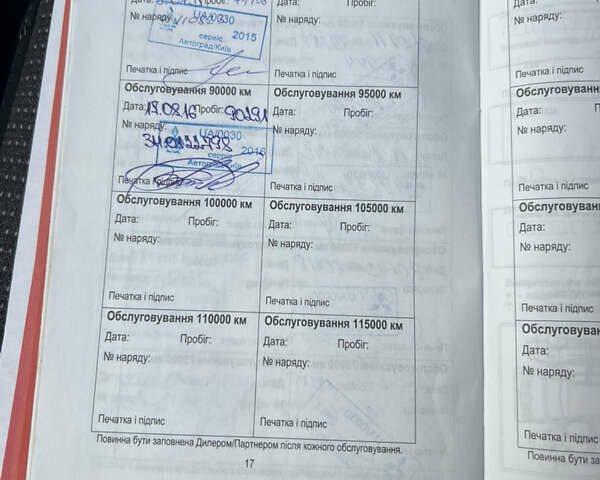 Дата: Пробіг:
№ наряду:
UA/0030
сервіс 2015
Автоград/Київ
Печатка і підпис
Пробіг:
№ наряду:
Печатка і підпис
Обслуговування 90000 км
Дата: 19.08.16 Пробіг: 90291
№ наряду:
UA/0030
сервіс 2016
Автоград/Київ
Печатка і підпис
Обслуговування 95000 км
Дата: Пробіг:
№ наряду:
Печатка і підпис
Обслуговування 100000 км
Дата: Пробіг:
№ наряду:
Печатка і підпис
Обслуговування 105000 км
Дата: Пробіг:
№ наряду:
Печатка і підпис
Обслуговування 110000 км
Дата: Пробіг:
№ наряду:
Печатка і підпис
Обслуговування 115000 км
Дата: Пробіг:
№ наряду:
Печатка і підпис
Повинна бути заповнена Дилером/Партнером після кожного обслуговування.
17
№ наряду:
Печатка і підпис
Обслуговування
Дата:
№ наряду:
Печатка і підпис
Обслуговування
Дата:
№ наряду:
Печатка і підпис
Обслуговуван
Дата:
№ наряду:
Печатка і підпис
Повинна бути за